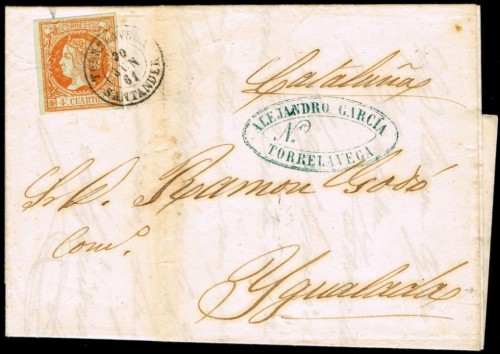 CORREOS
4 CUARTOS
TORRELAVEGA
20
JUN
61
SANTANDER
Cataluña
ALEJANDRO GARCIA
N.
TORRELAVEGA
Sr. D. Ramon Godó
Como
Ygualada